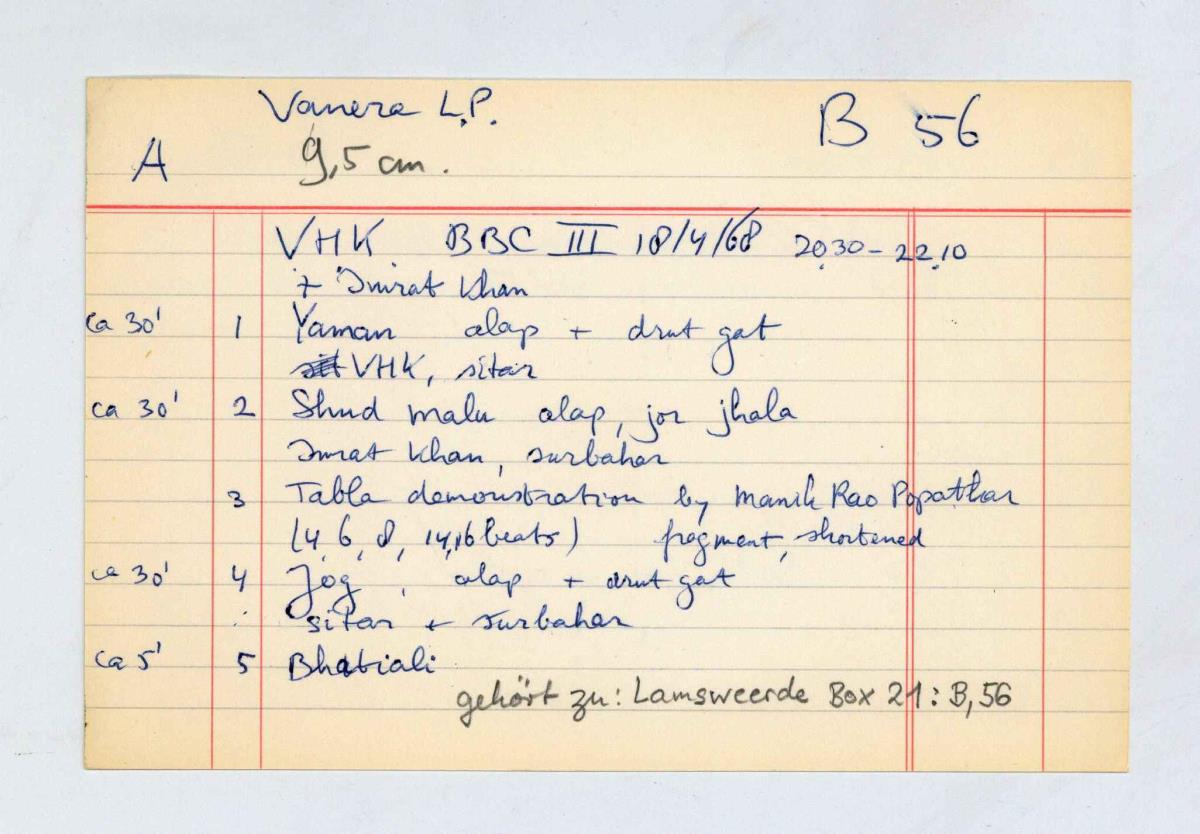 Vanera L.P. B 56
A 9,5 cm.
VHK BBC III 18/4/68 20.30 - 22.10
+ Imrat Khan
ca 30' 1 Yaman alap + drut gat
VHK, sitar
ca 30' 2 Shud malu alap, jor jhala
Imrat Khan, surbahar
3 Tabla demonstration by Manik Rao Popatkar
(4, 6, 8, 14, 16 beats) fragment, shortened
ca 30' 4 Jog, alap + drut gat
sitar + surbahar
ca 5' 5 Bhatiali
gehört zu: Lamsweerde Box 21: B, 56